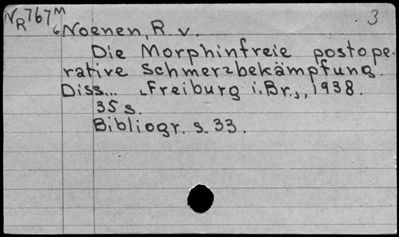 NR767M 3
6 Noenen, R. v.
Die Morphinfreie postope-
rative Schmerzbekämpfung.
Diss... Freiburg i.Br., 1938.
35 s.
Bibliogr. s. 33.